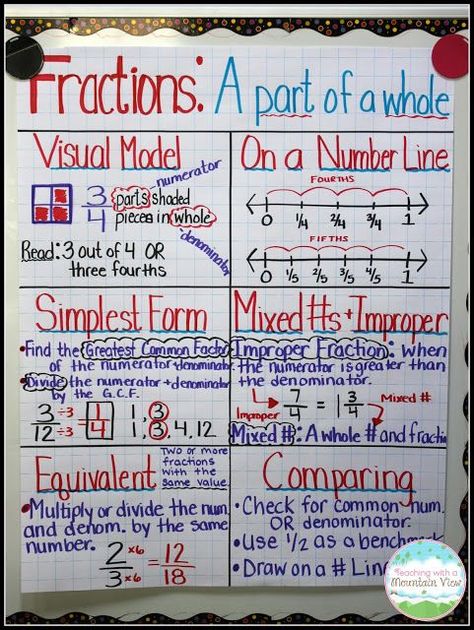 Fractions: A part of a whole
Visual Model
numerator
3 parts shaded
4 pieces in whole
denominator
Read: 3 out of 4 OR
three fourths
On a Number Line
FOURTHS
0 1/4 2/4 3/4 1
FIFTHS
0 1/5 2/5 3/5 4/5 1
Simplest Form
•Find the Greatest Common Factor
of the numerator+denominator.
•Divide the numerator+denominator
by the G.C.F.
3 ÷3 = 1
12 ÷3 4
1, 3
1, 3, 4, 12
Mixed #s + Improper
Improper Fraction: when
the numerator is greater than
the denominator.
Improper 7/4 = 1 3/4 Mixed #
Mixed #: A whole # and fractio
Equivalent
Two or more
fractions
with the
same value.
•Multiply or divide the num.
and denom. by the same
number.
2 x6 = 12
3 x6 18
Comparing
•Check for common num.
OR denominator.
•Use 1/2 as a benchm
•Draw on a # Lin
Teaching with a
Mountain View